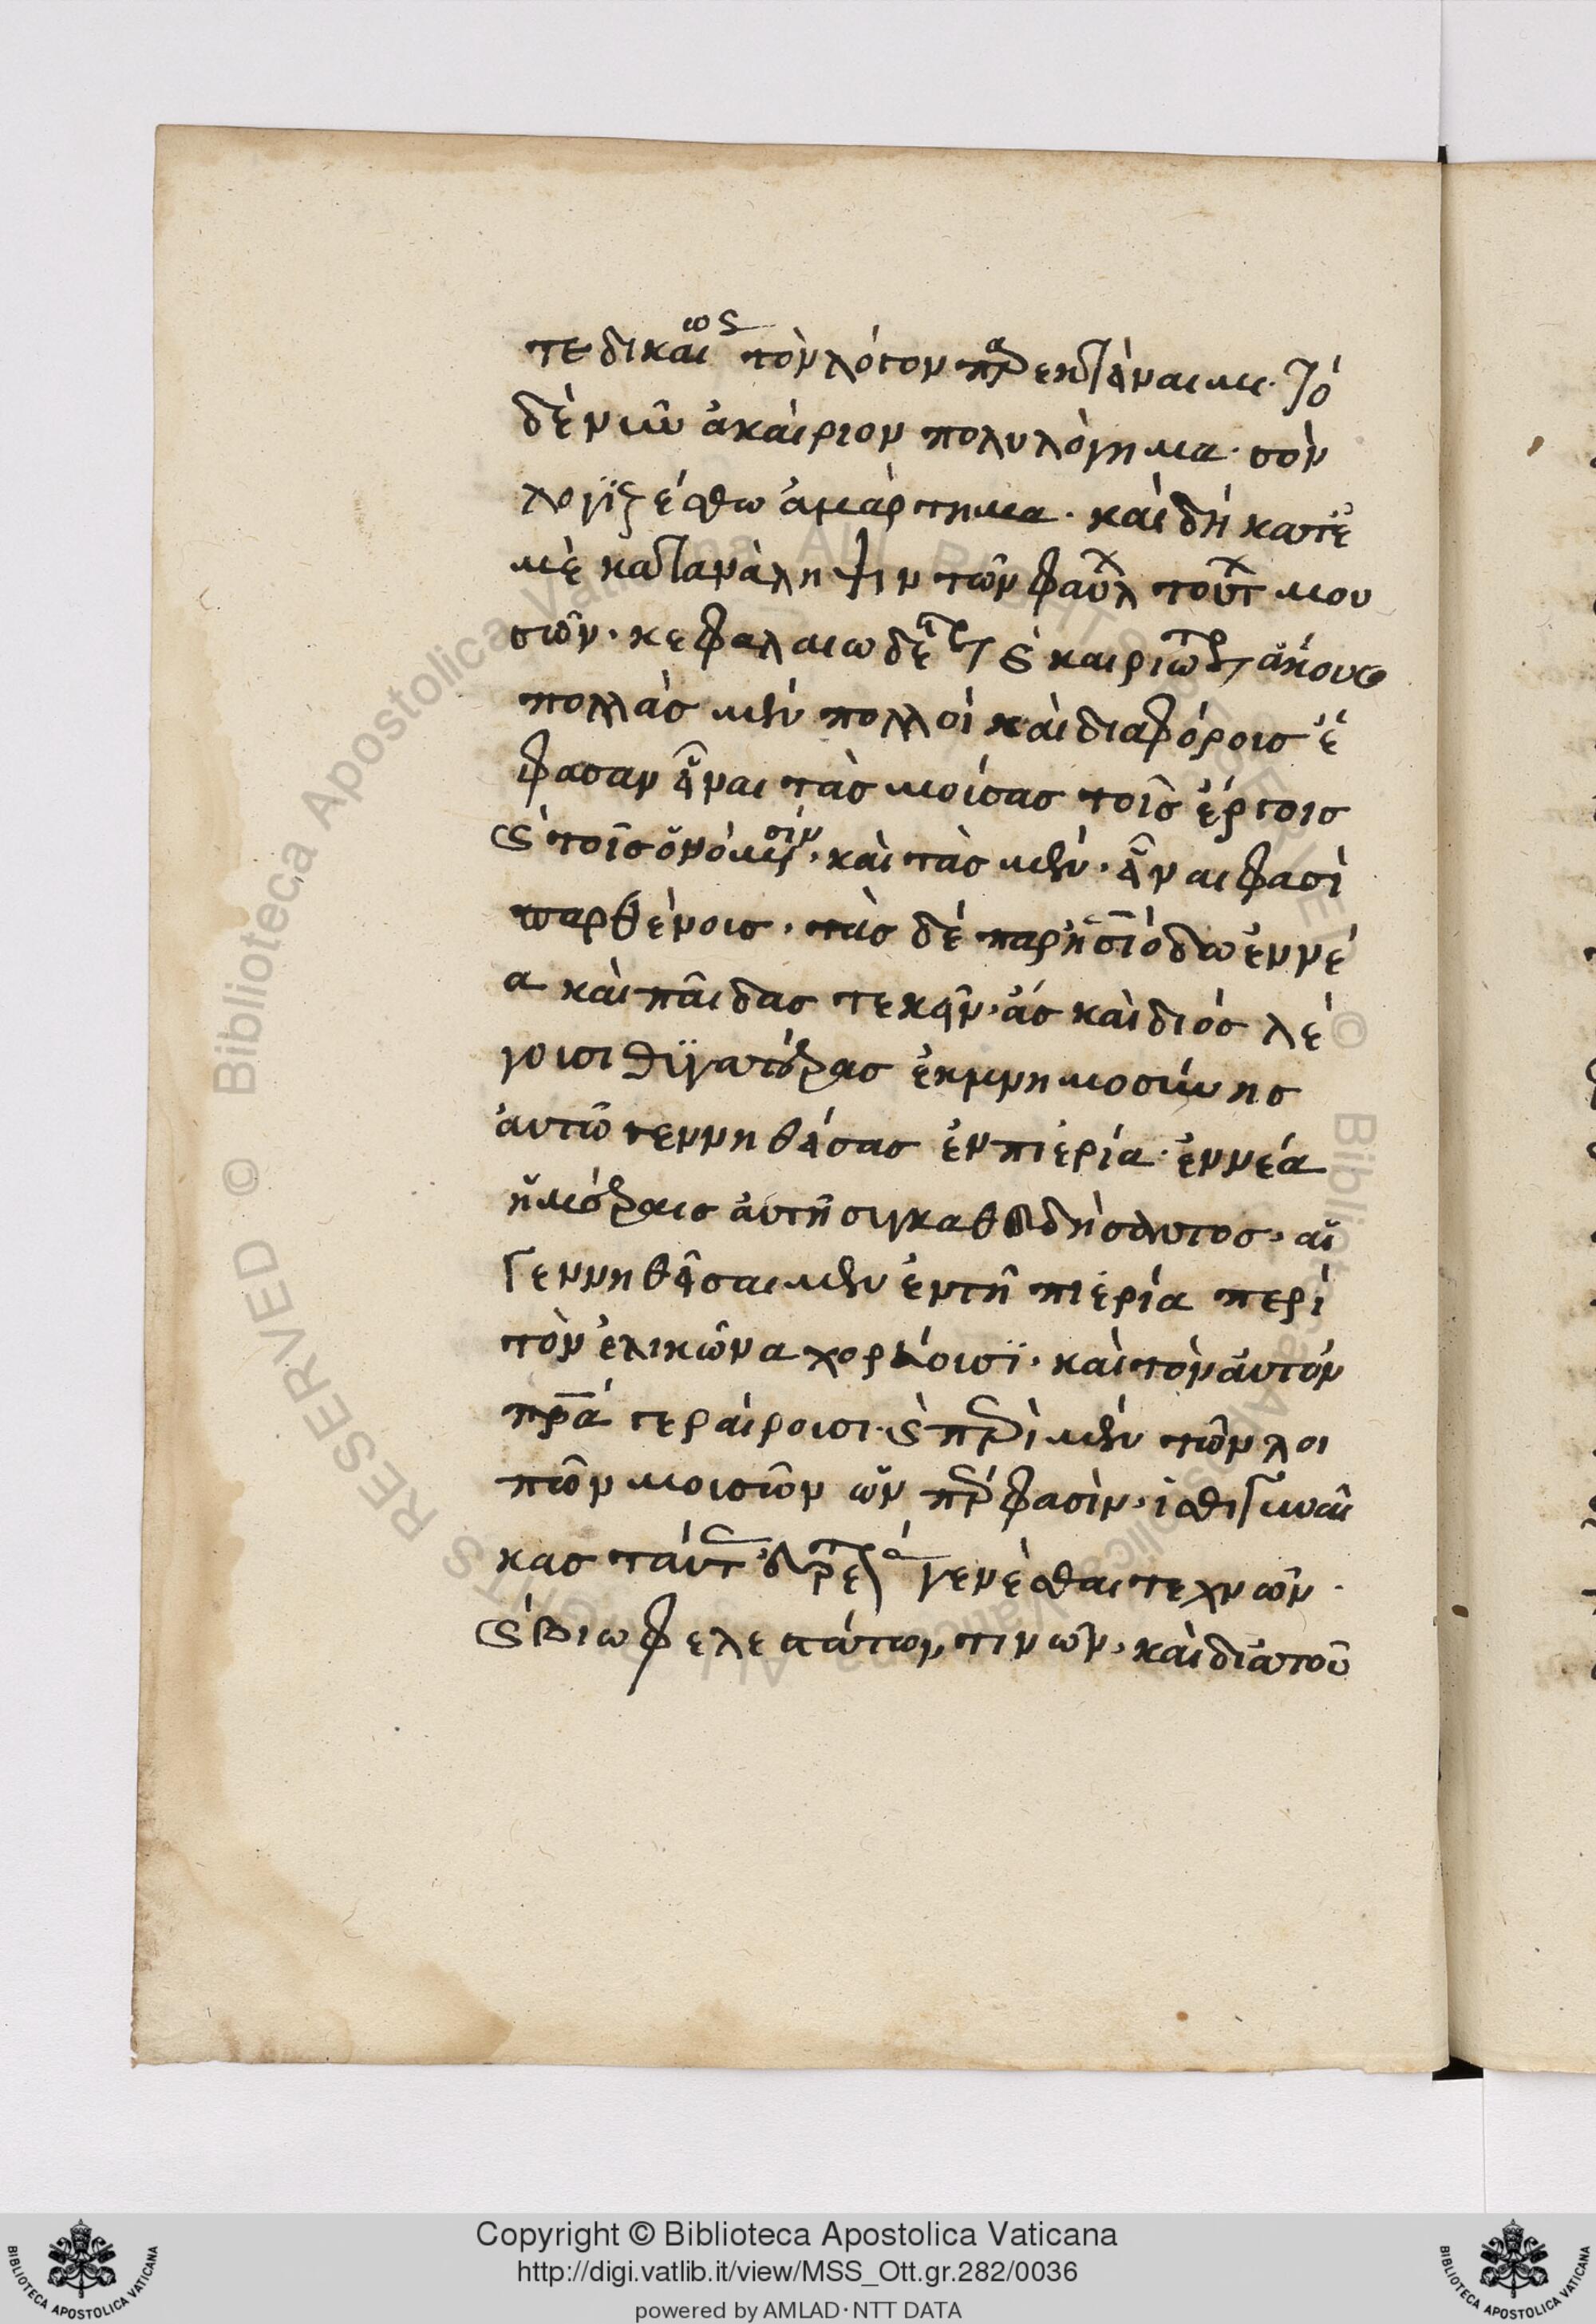 τε δικαίως τὸν λόγον παρεκτεῖναι με. τὸ
δὲ νῦν ἀκαίριον πολυλόγημα. σὸν
λογϊζέσθω ἁμάρτημα. καὶ δὴ κατ' ἐ
μὲ κατανάληψιν τῶν φαύλ τούτ μου
σῶν. κεφαλαιωδέστ καὶ καιριώτ ἄκουε
πολλὰς μὲν πολλοὶ καὶ διαφόρους ἔ
φασαν εἶναι τὰς μούσας τοῖς ἔργοις
καὶ τοῖς ὀνόμασιν. καὶ τὰς μὲν. εἶναι φασὶ
παρθένους. τὰς δὲ παρ' ἡσιόδω ἐννέ
α καὶ παῖδας τεκεῖν. ἃς καὶ διὸς λέ
γουσι θϋγατέρας ἐκ μνημοσύνης
αὐτῶ γεννηθείσας ἐν πιερία. ἐννέα
ἡμέραις αὐτῆ συγκαθευδήσαντος. αἳ
γεννηθεῖσαι μὲν ἐν τῆ πιερία περὶ
τὸν ἑλικῶνα χορεύουσϊ. καὶ τὸν αὐτῶν
πρα γεραίρουσι. καὶ περὶ μὲν τῶν λοι
πῶν μουσῶν ὧν περ φασὶν. ἴσθι γυναῖ
κας ταύτ εὑρετ γενέσθαι τεχνῶν.
καὶ βιωφελεστάτων τινῶν. καὶ διὰ τοῦ
Copyright © Biblioteca Apostolica Vaticana
http://digi.vatlib.it/view/MSS_Ott.gr.282/0036
powered by AMLAD·NTT DATA